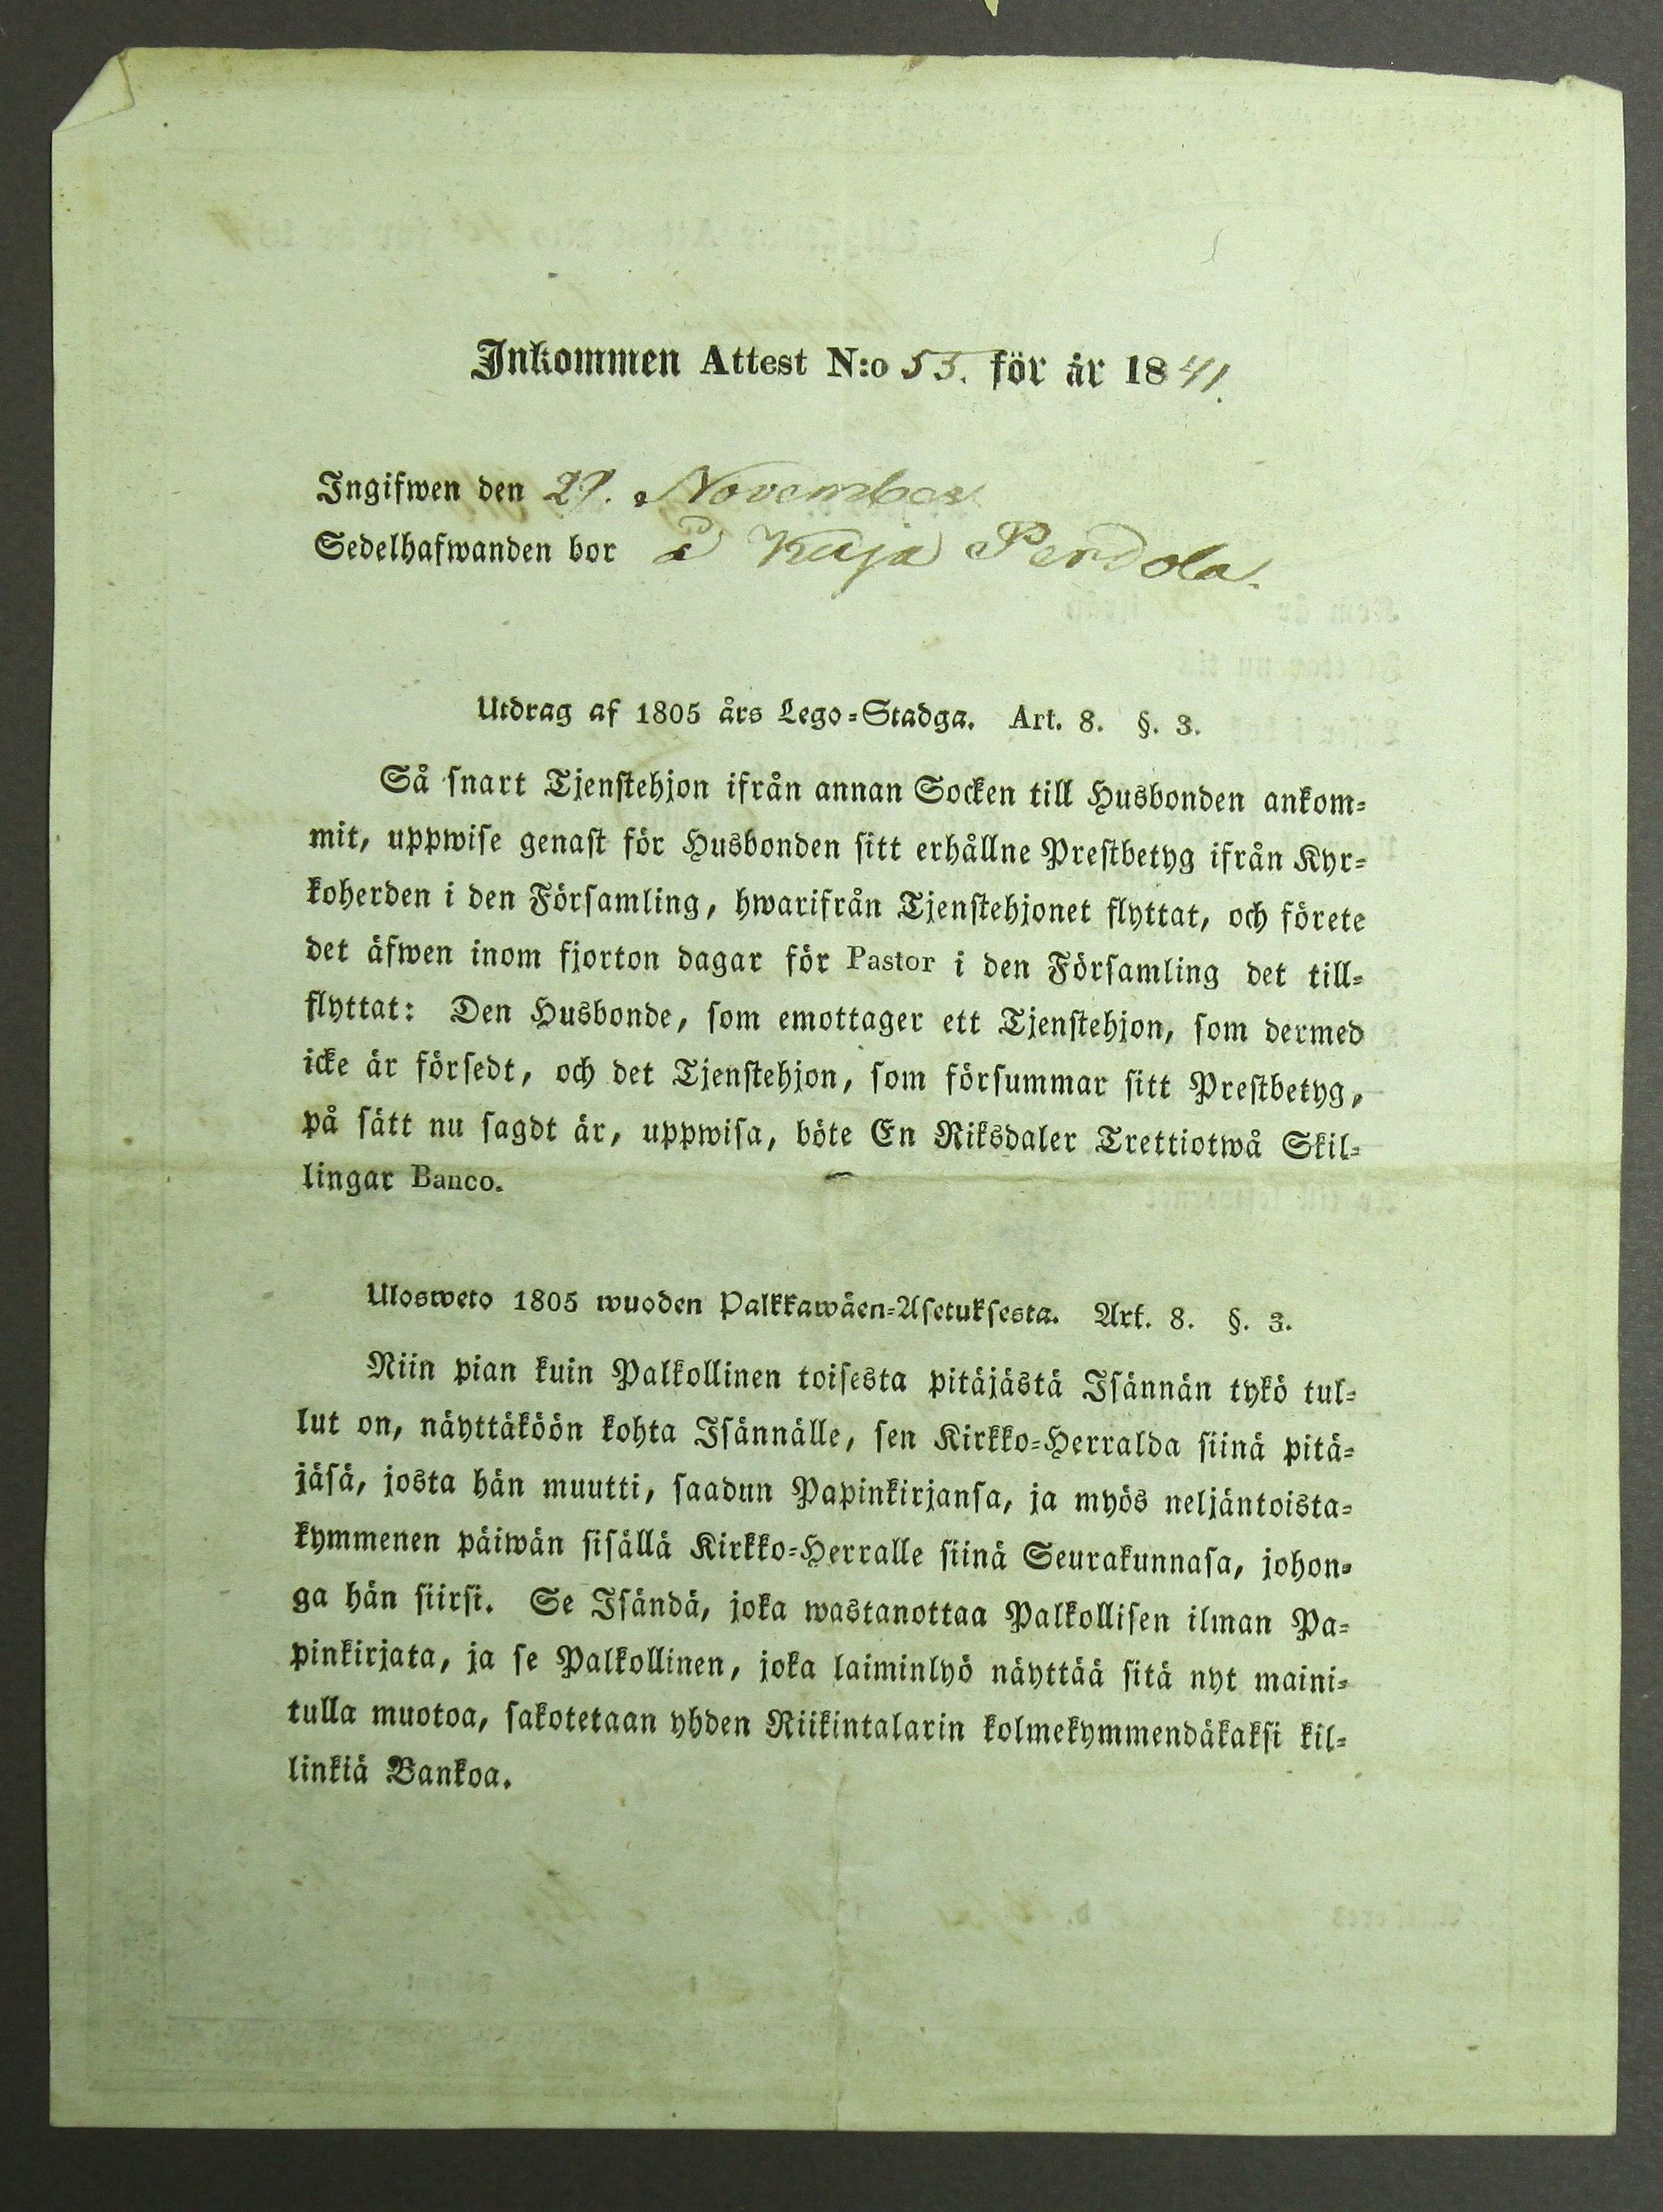 Inkommen Attest N:o 55. för år 1841.
Ingifwen den 29. November
Sedelhafwanden bor å Kaja Perdola.
Utdrag af 1805 års Lego-Stadga. Art. 8. §. 3.
Så snart Tjenstehjon ifrån annan Socken till Husbonden ankom-
mit, uppwise genast för Husbonden sitt erhållne Prestbetyg ifrån Kyr-
koherden i den Församling, hwarifrån Tjenstehjonet flyttat, och förete
det äfwen inom fjorton dagar för Pastor i den Församling det till-
flyttat: Den Husbonde, som emottager ett Tjenstehjon, som dermed
icke är försedt, och det Tjenstehjon, som försummar sitt Prestbetyg,
på sätt nu sagdt är, uppwisa, böte En Riksdaler Trettiotwå Skil-
lingar Banco.
Ulosweto 1805 wuoden Palkkawäen-Asetuksesta. Art. 8. §. 3.
Niin pian kuin Palkollinen toisesta pitäjästä Isännän tykö tul-
lut on, näyttäköön kohta Isännälle, sen Kirkko-Herralda siinä pitä-
jäsä, josta hän muutti, saadun Papinkirjansa, ja myös neljäntoista-
kymmenen päiwän sisällä Kirkko-Herralle siinä Seurakunnasa, johon-
ga hän siirsi. Se Isändä, joka wastanottaa Palkollisen ilman Pa-
pinkirjata, ja se Palkollinen, joka laiminlyö näyttää sitä nyt maini-
tulla muotoa, sakotetaan yhden Riikintalarin kolmekymmendäkaksi kil-
linkiä Bankoa.